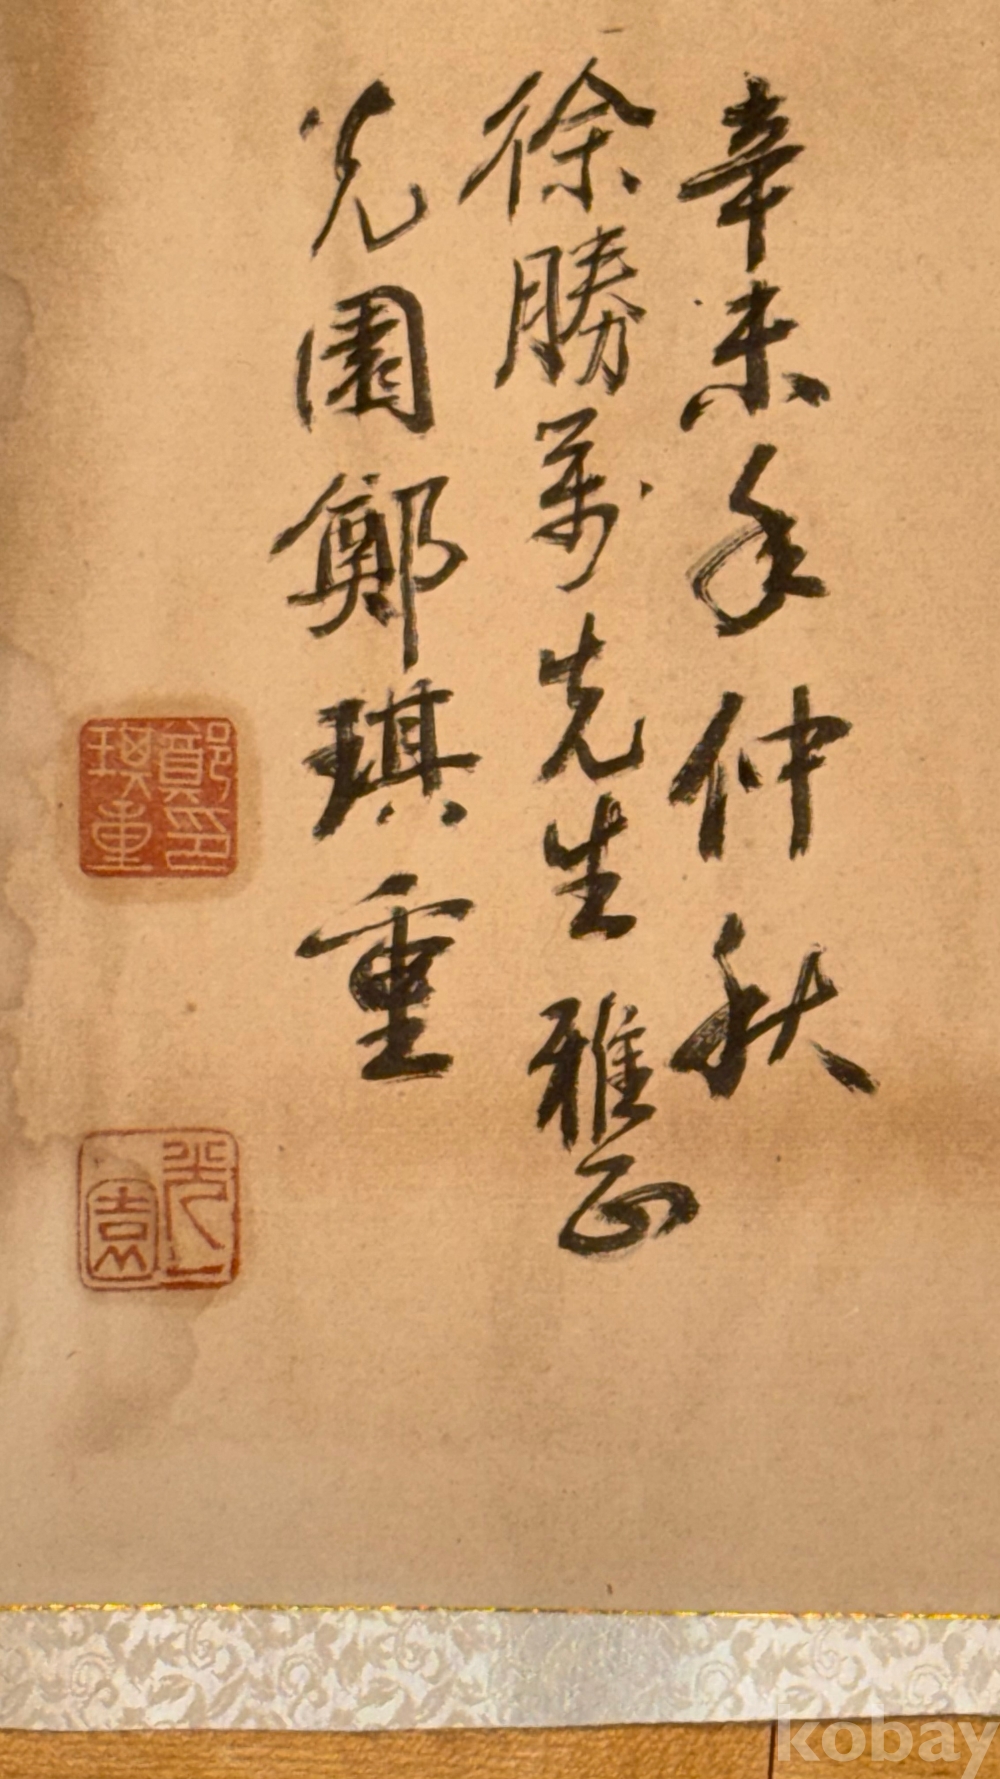 辛未年仲秋
徐勝萬先生雅正
光園鄭琪重
鄭印琪重
光園
kobay